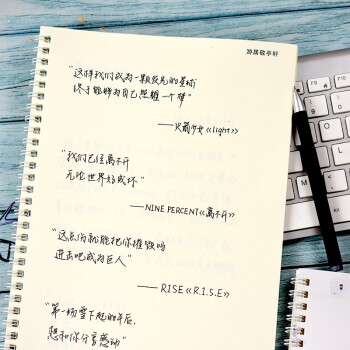 游居敬亭轩
"这样我们成为一颗发光的星球
终于能够为自己照耀一个梦"
——火箭少女《light》
"我们已经离不开
无论世界好或坏"
——NINE PERCENT《离不开》
"这点伤就能把你摧毁吗
进击吧成为巨人"
——RISE《R.I.S.E》
"第一场雪下起的午后,
想和你分享感动"